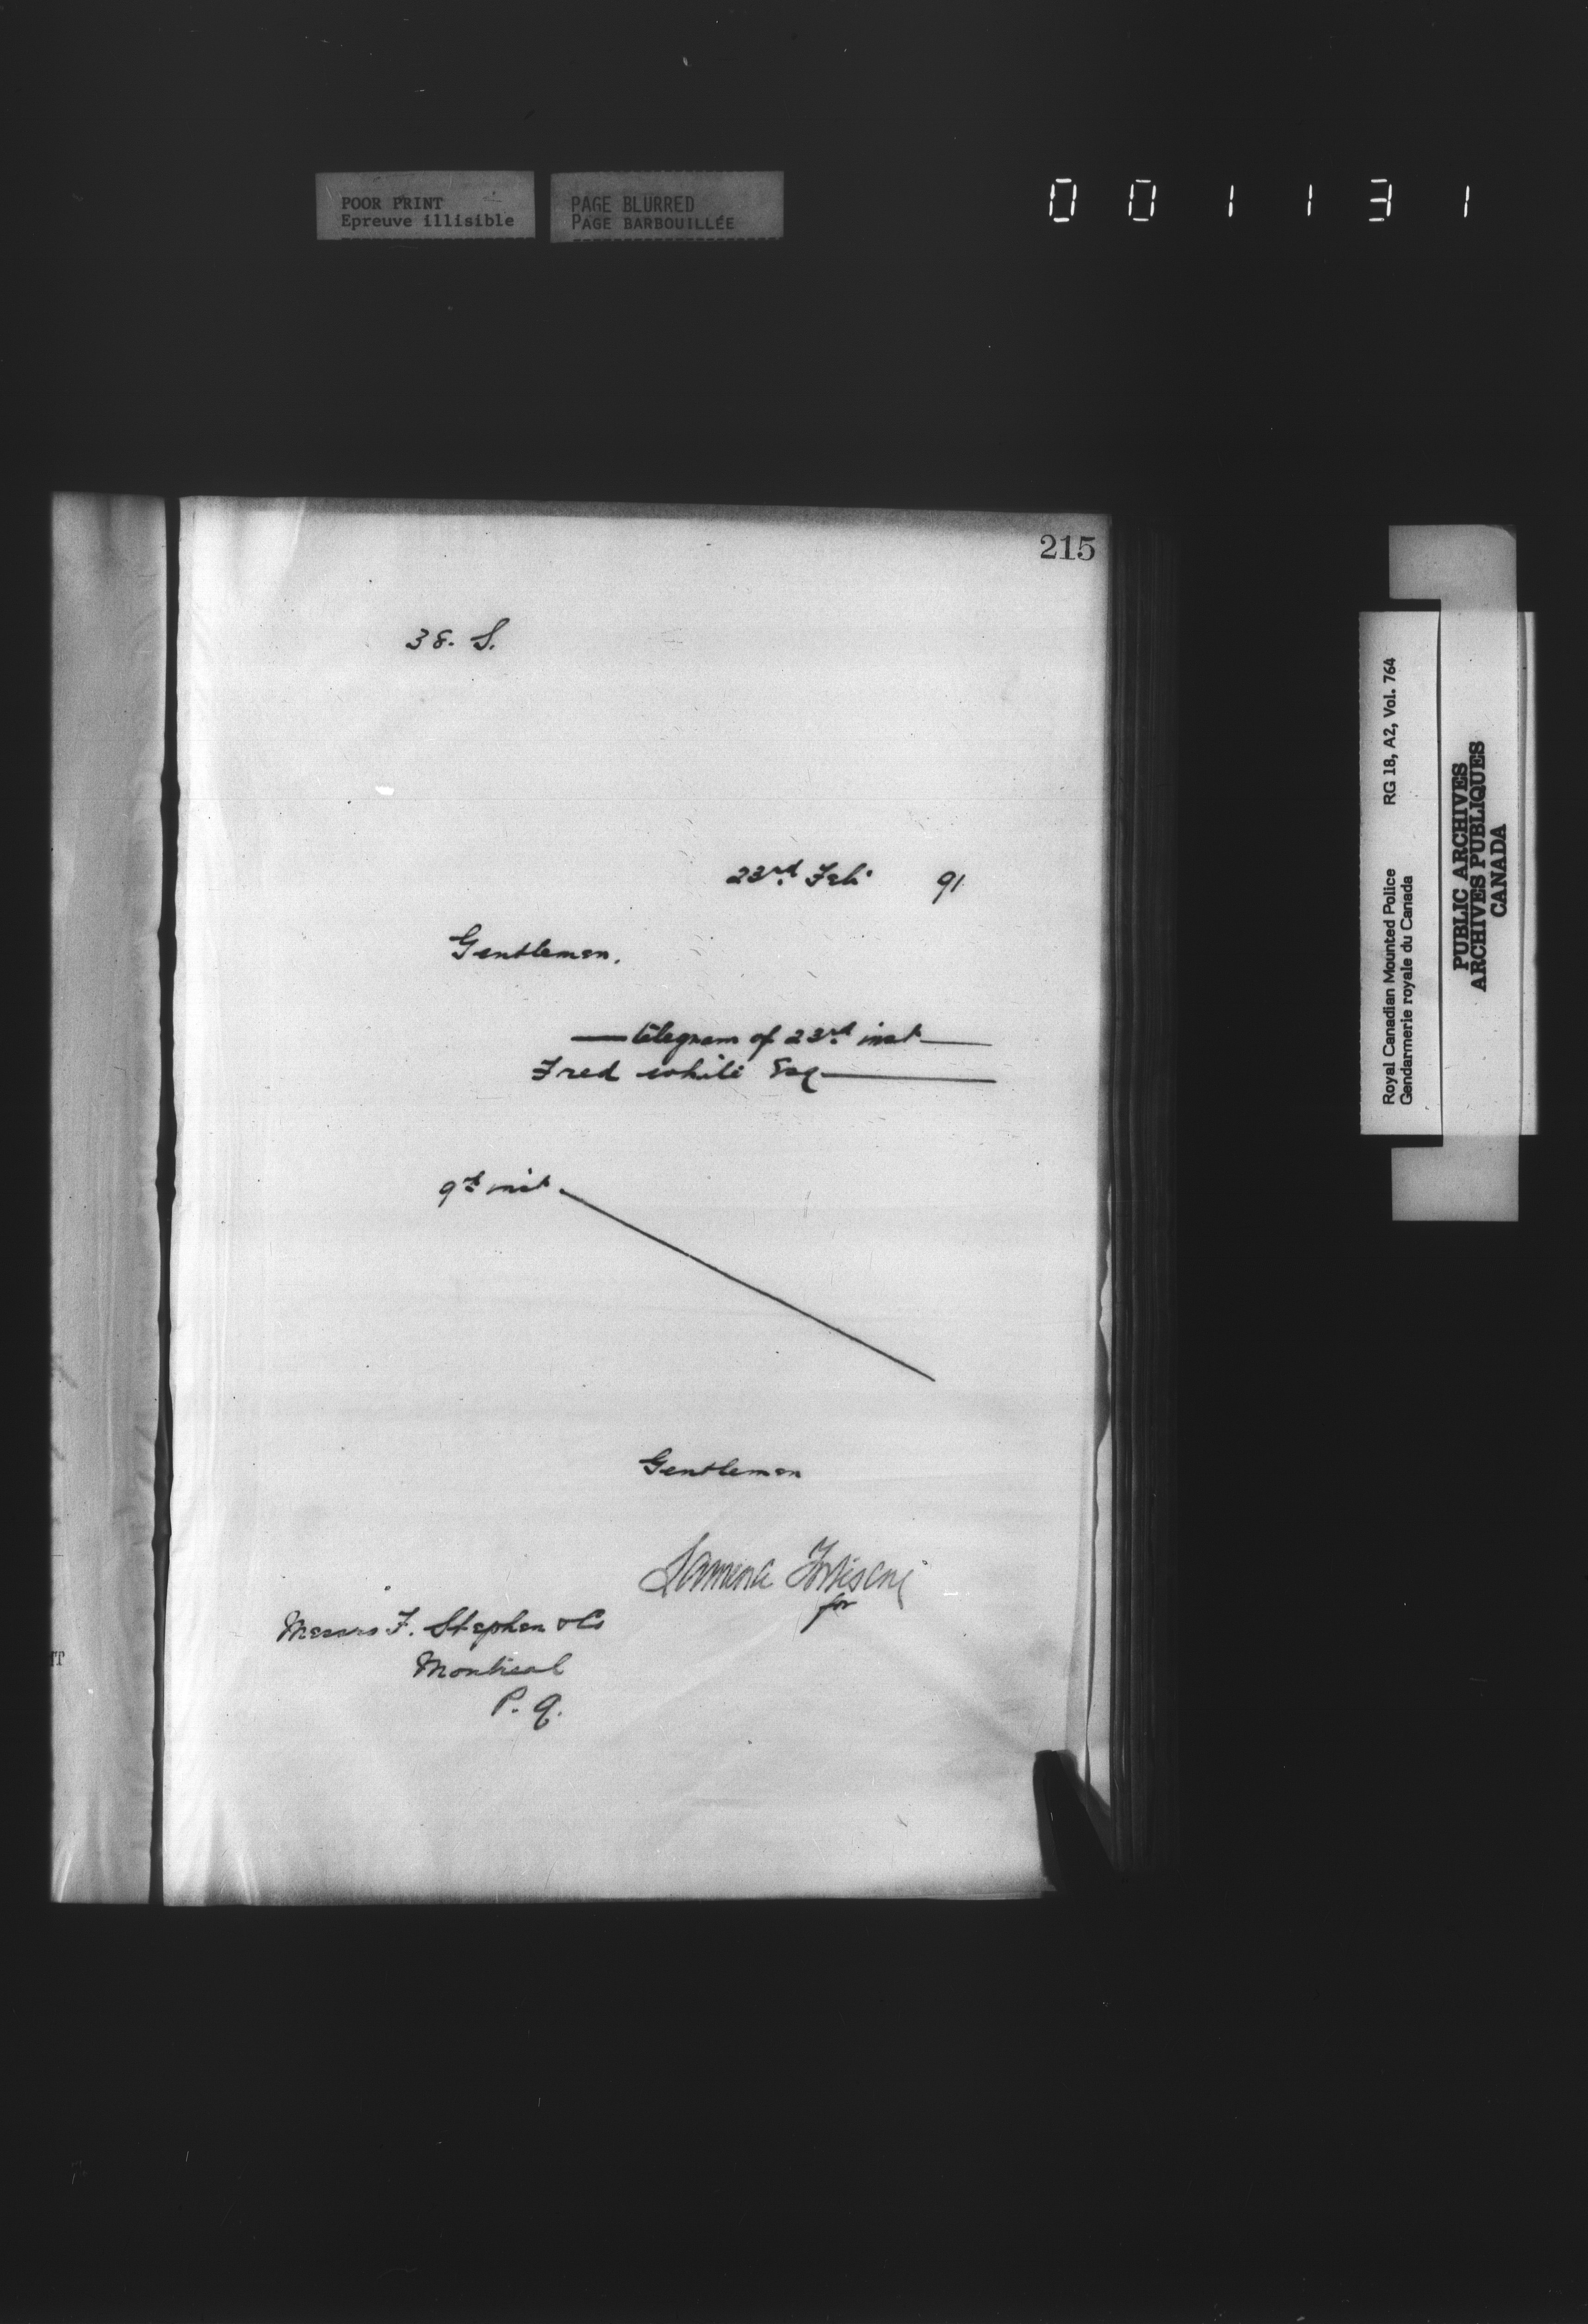 POOR PRINT
Epreuve illisible
PAGE BLURRED
PAGE BARBOUILLÉE
001131
215
38. S.
23rd Feb 91
Gentlemen.
telegram of 23rd inst
Fred White Esq
9th inst
Gentlemen
for
Messrs F. Stephen & Co
Montreal
P. Q.
Royal Canadian Mounted Police RG 18, A2, Vol. 764
Gendarmerie royale du Canada
PUBLIC ARCHIVES
ARCHIVES PUBLIQUES
CANADA